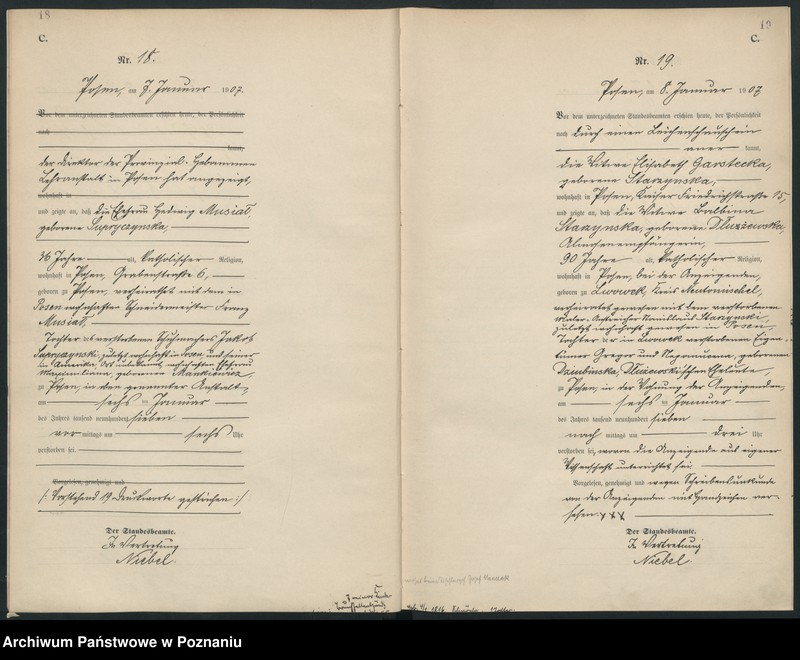 18
C.
Nr. 18.
Posen, am 7. Januar 1907.
Vor dem unterzeichneten Standesbeamten erschien heute, der Persönlichkeit
nach
kannt,
der Direktor der Provinzial-Hebammen
Lehranstalt in Posen hat angezeigt,
wohnhaft in
und zeigte an, daß die Ehefrau Hedwig Musiał,
geborene Supryczynska,
36 Jahre alt, katholischer Religion,
wohnhaft in Posen, Grabenstraße 6,
geboren zu Posen, verheiratet mit dem in
Posen wohnhaften Schneidermeister Franz
Musiał,
Tochter des verstorbenen Schuhmachers Jakob
Supryczynski, zuletzt wohnhaft in Posen, und seiner
in Amerika, Ort unbekannt, wohnhaften Ehefrau
Maximiliana geborene Mankiewicz,
zu Posen, in der genannten Anstalt,
am sechs ten Januar
des Jahres tausend neunhundert sieben
vor mittags um sechs Uhr
verstorben sei.
Vorgelesen, genehmigt und
/: Vorstehend 19 Druckworte gestrichen :/
Der Standesbeamte.
In Vertretung
Niebel.
19
C.
Nr. 19.
Posen, am 8. Januar 1907
Vor dem unterzeichneten Standesbeamten erschien heute, der Persönlichkeit
nach durch einen Leichenschauschein
aner kannt,
die Witwe Elisabeth Garstecka,
geborene Starzynska,
wohnhaft in Posen, Kaiser Friedrichstraße 15,
und zeigte an, daß die Witwe Balbina
Starzynska, geborene Dłużewska,
Almosenempfängerin,
90 Jahre alt, katholischer Religion,
wohnhaft in Posen, bei der Anzeigenden,
geboren zu Lwowek, Kreis Neutomischel,
verheiratet gewesen mit dem verstorbenen
Maler Stanislaus Starzynski,
zuletzt wohnhaft gewesen in Posen,
Tochter der in Lwowek verstorbenen Eigen-
tümer Gregor und Nepomucena, geborenen
Dziubinska, Dłużewskischen Eheleute,
zu Posen, in der Wohnung der Anzeigenden,
am sechs ten Januar
des Jahres tausend neunhundert sieben
nach mittags um drei Uhr
verstorben sei, wovon die Anzeigende aus eigener
Wissenschaft unterrichtet sei.
Vorgelesen, genehmigt und wegen Schreibensunkunde
von der Anzeigenden mit Handzeichen ver-
sehen. XXX
Der Standesbeamte.
In Vertretung
Niebel.
Archiwum Państwowe w Poznaniu